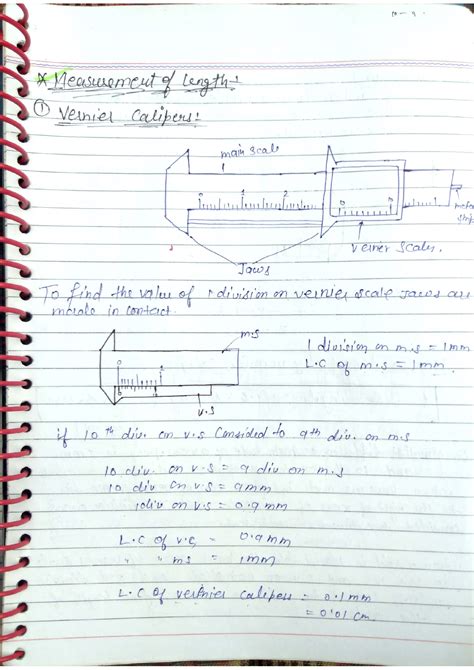 * Measurement of length:-
① Vernier Calipers:-
main scale
0 1 2
0
verner scale.
Jaws
To find the value of 1 division on vernier scale Jaws are
made in contact.
m.s
1 division on m.s = 1mm
L.C of m.s = 1mm.
0 1
v.s
if 10th div. on v.s Consided to 9th div. on m.s
10 div. on v.s = 9 div on m.s
10 div on v.s = 9mm
1div on v.s = 0.9 mm
L.C of v.c = 0.9mm
" " ms = 1mm
L.C of vernier calipers = 0.1mm
= 0.01 cm.